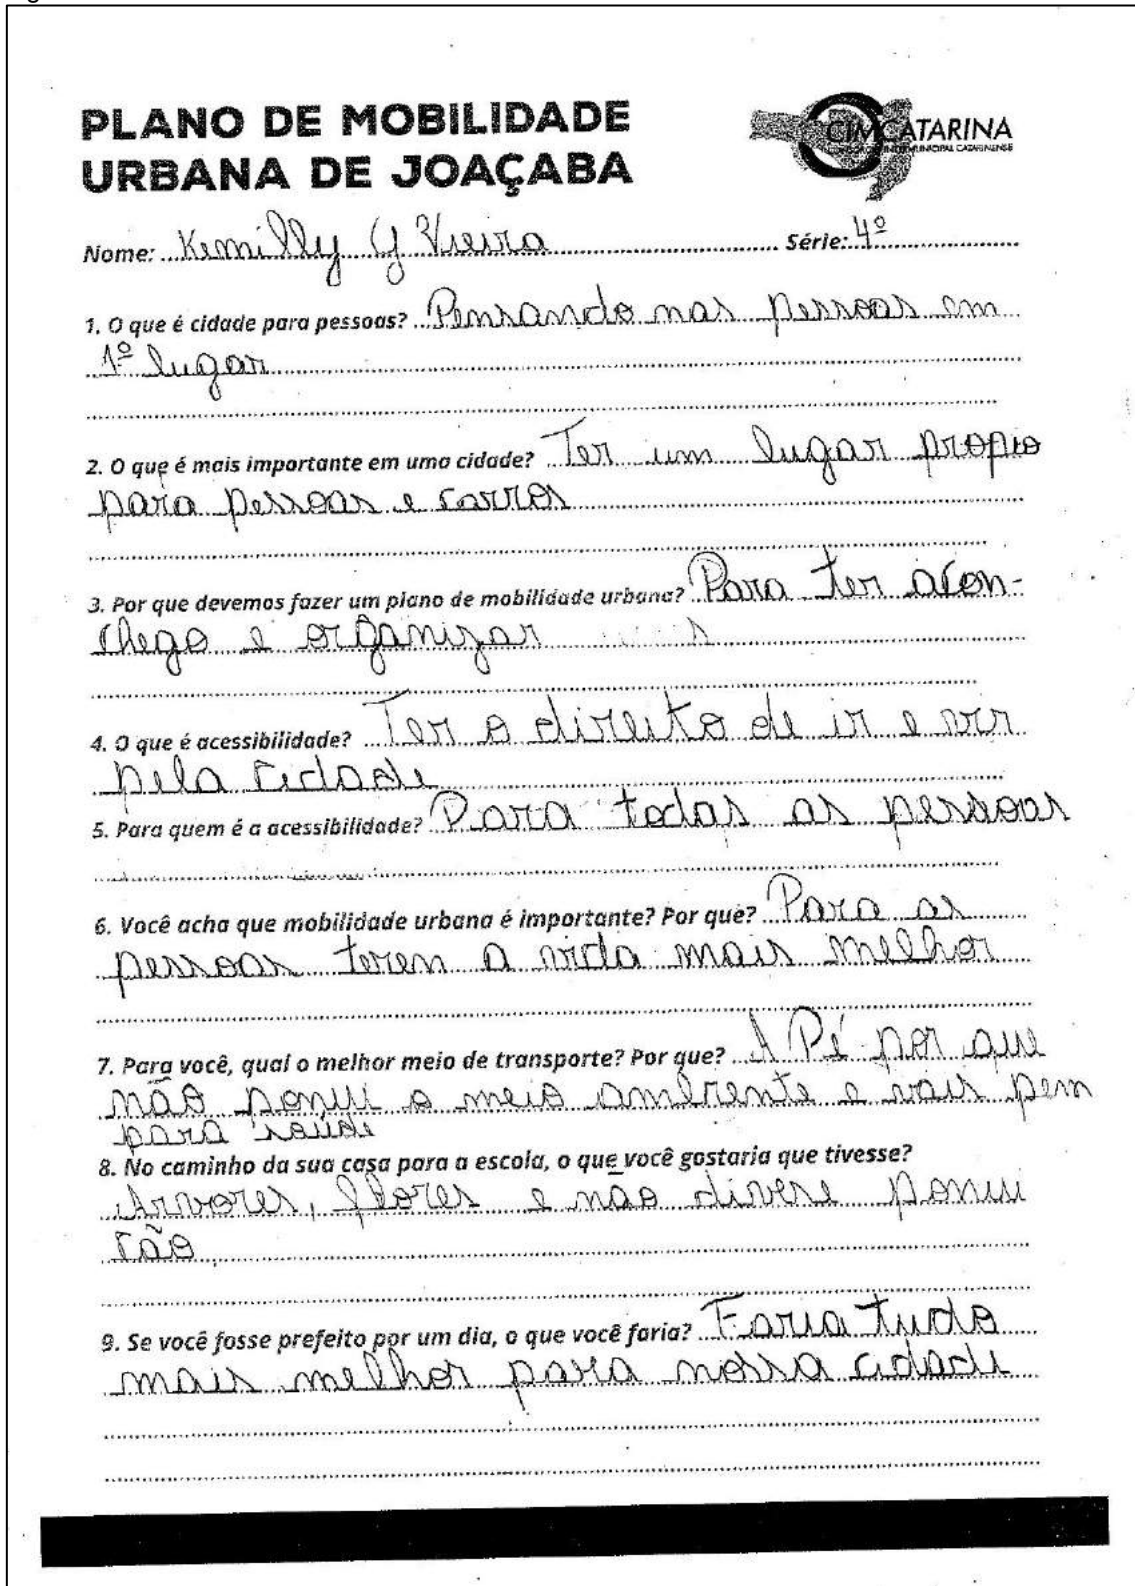 PLANO DE MOBILIDADE
URBANA DE JOAÇABA
CIMCATARINA
Nome: Kemilly G Vieira Série: 4º
1. O que é cidade para pessoas? Pensando nas pessoas em
1º lugar
2. O que é mais importante em uma cidade? Ter um lugar propio
para pessoas e carros
3. Por que devemos fazer um plano de mobilidade urbana? Para ter acon-
chego e organizar
4. O que é acessibilidade? Ter o direito de ir e vir
pela cidade
5. Para quem é a acessibilidade? Para todas as pessoas
6. Você acha que mobilidade urbana é importante? Por que? Para as
pessoas terem a vida mais melhor
7. Para você, qual o melhor meio de transporte? Por que? A Pé por que
não ponui o meio ambiente e vais pem
para saúde
8. No caminho da sua casa para a escola, o que você gostaria que tivesse?
Arvores, flores e não divese ponui
cão
9. Se você fosse prefeito por um dia, o que você faria? Faria tudo
mais melhor para nossa cidade